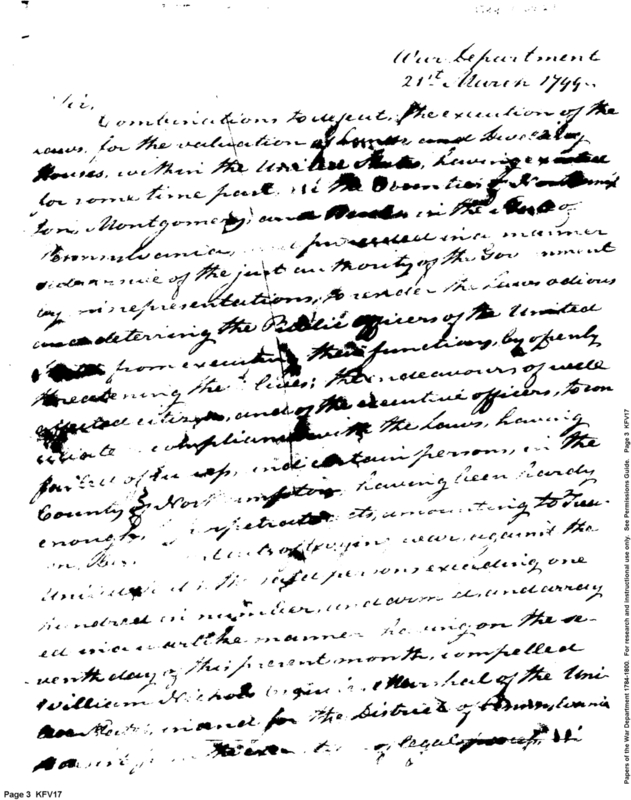 War Department
21st March 1799.
Sir,
Combinations to the execution of the
Laws, for the valuation of Lands and Dwelling
Houses, within the United States, having existed
for some time past in the Counties of Northamp
ton, Montgomery, and Bucks in the State of
Pennsylvania, and proceeded in a manner
of the just authority of the Gov nment
by misrepresentations, to render the Laws odious
and deterring the Public officers of the United
States from executing their functions, by openly
threatening their lives; the endeavours of well
affected citizens, and of the executive officers, to con
ciliate a compliance with the Laws, having
failed of success, and certain persons, in the
County of Northampton having been hardy
enough to perpetrate acts, amounting to Trea
son, levying war, against the
United the said persons exceeding one
hundred in number, and armed, and array
ed in a warlike manner having on the se
venth day of this present month, compelled
William Nichols Esquire, Marshal of the Uni
ted States, in and for the District of Pennsylvania
to the of legal process, to
Page 3 KFV17
Papers of the War Department 1784-1800. For research and instructional use only. See Permissions Guide. Page 3 KFV17